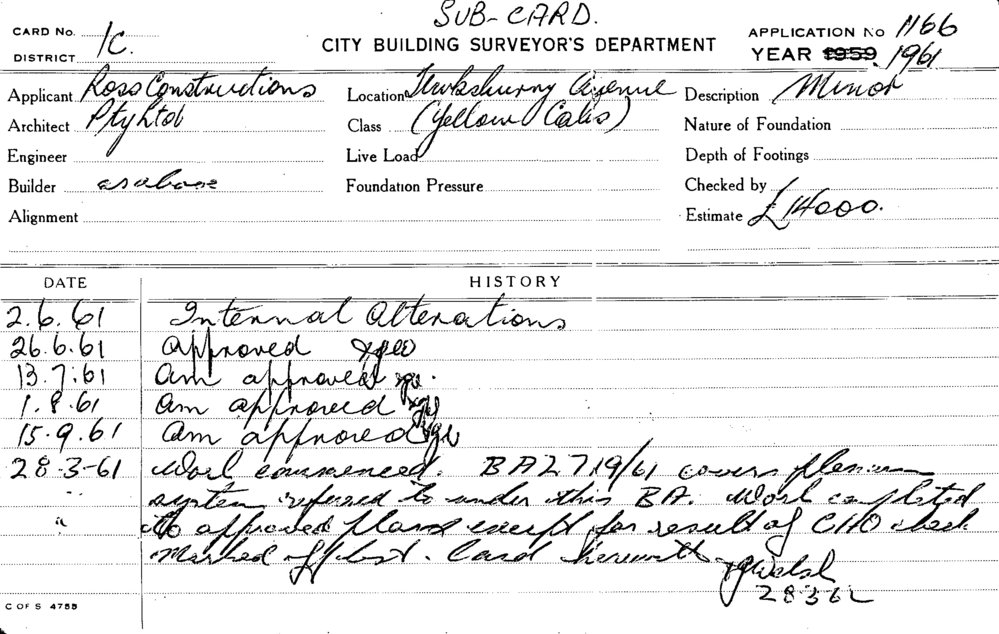 SUB-CARD.
CARD No. 1C.
DISTRICT
CITY BUILDING SURVEYOR'S DEPARTMENT
APPLICATION No 1166
YEAR 1959. 1961
Applicant Ross Constructions
Location Tewksburry Avenue
Description Minor
Architect Pty Ltd
Class (Yellow Cabs)
Nature of Foundation
Engineer
Live Load
Depth of Footings
Builder as above
Foundation Pressure
Checked by
Alignment
Estimate £14000.
DATE HISTORY
2.6.61 Internal Alterations
26.6.61 Approved
13.7.61 Am approved
1.8.61 Am approved
15.9.61 Am approved
28-3-61 Work commenced. BA2719/61 covers plenum
" system referred to under this BA. Work completed
" to approved plans except for result of CHO check
Marked off list. Card herewith
28362
C OF S 4755